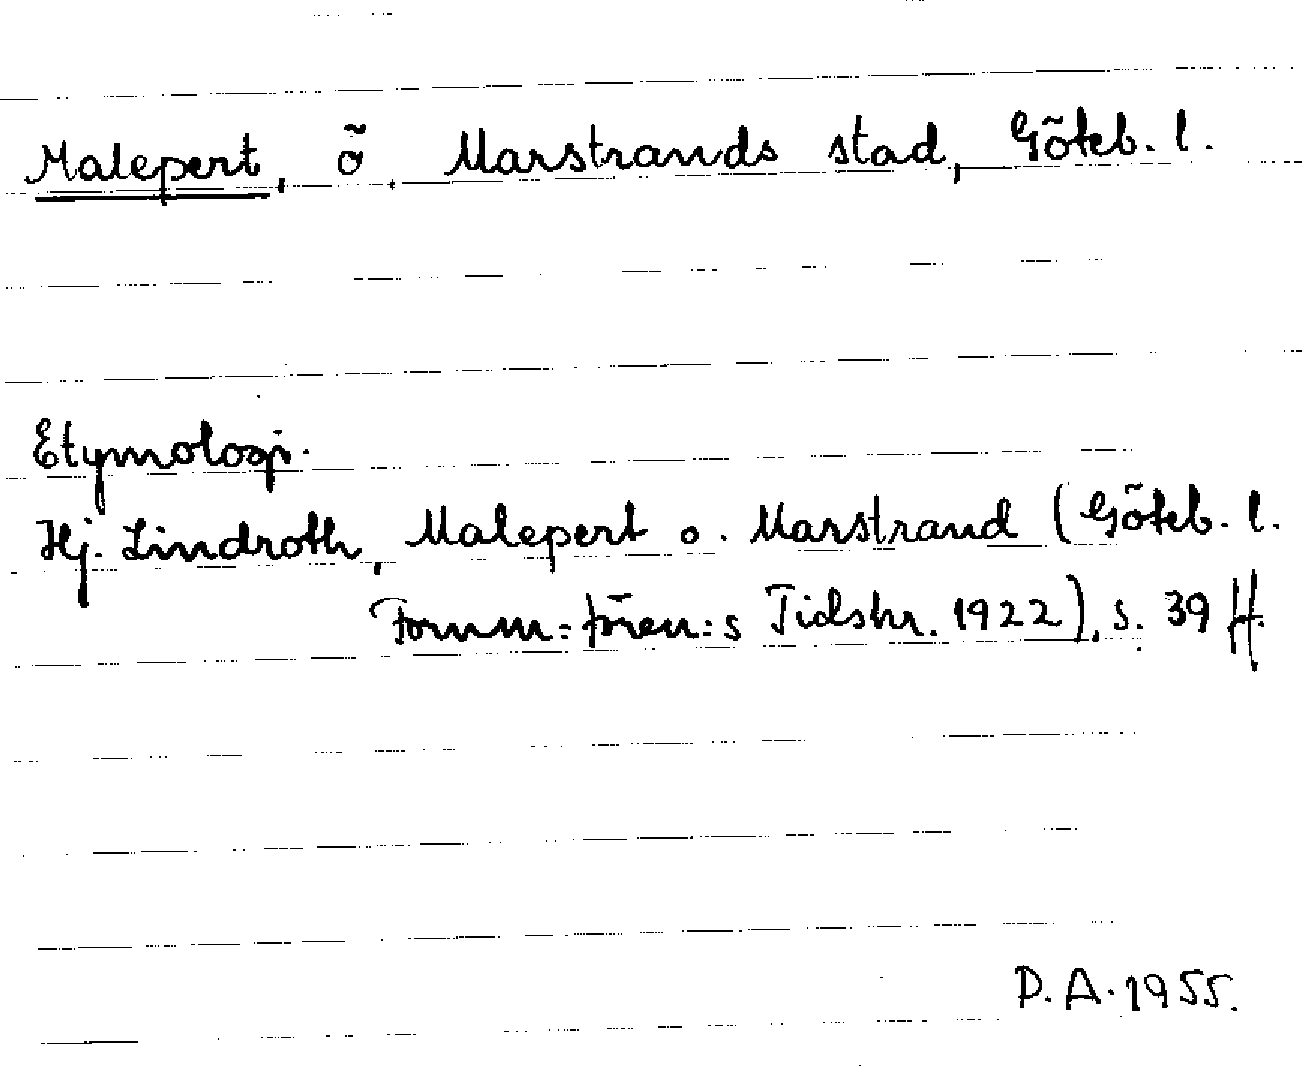 Malepert, ö. Marstrands stad, Göteb. l.
Etymologi.
Hj. Lindroth, Malepert o. Marstrand (Göteb. l.
Fornm:fören:s Tidskr. 1922), s. 39 ff.
D.A. 1955.